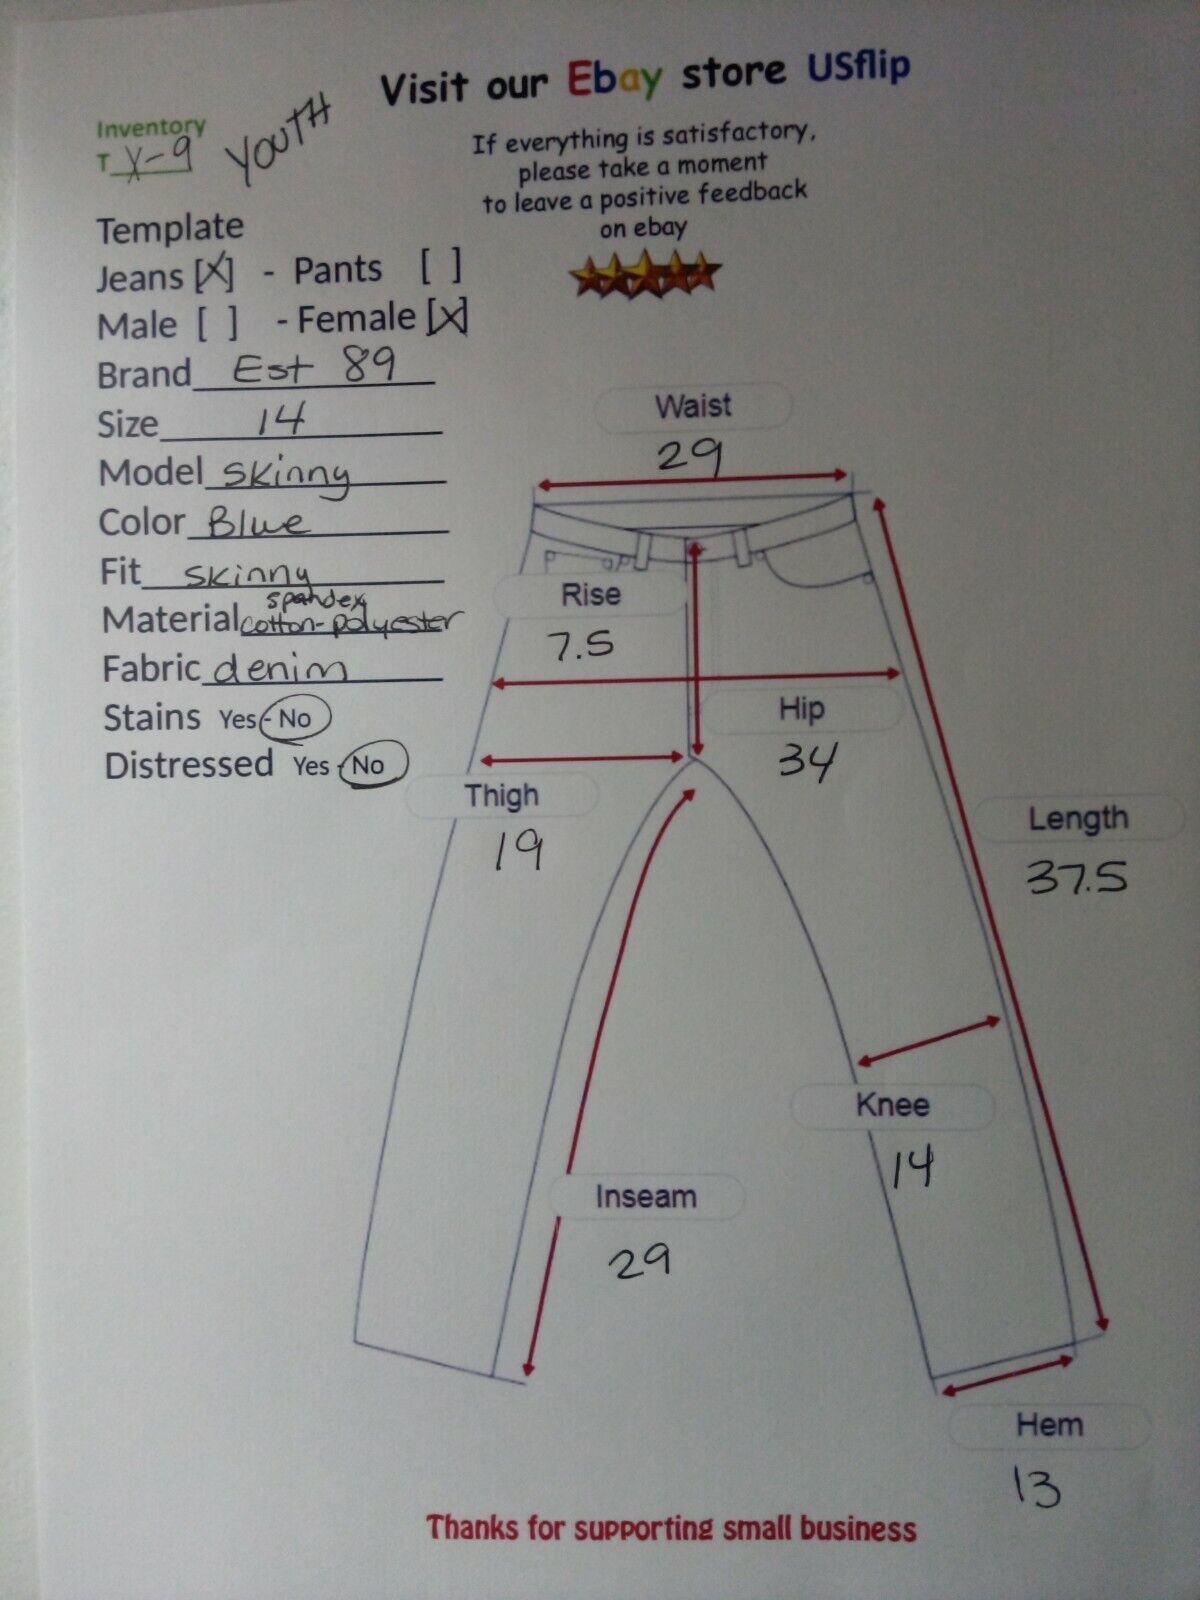 Visit our Ebay store USflip
Inventory
T X-9
YOUTH
If everything is satisfactory,
please take a moment
to leave a positive feedback
on ebay
Template
Jeans [X] - Pants [ ]
Male [ ] - Female [X]
Brand Est 89
Size 14
Model Skinny
Color Blue
Fit skinny
spandex
Material cotton-polyester
Fabric denim
Stains Yes - No
Distressed Yes - No
Waist
29
Rise
7.5
Hip
34
Thigh
19
Length
37.5
Knee
14
Inseam
29
Hem
13
Thanks for supporting small business